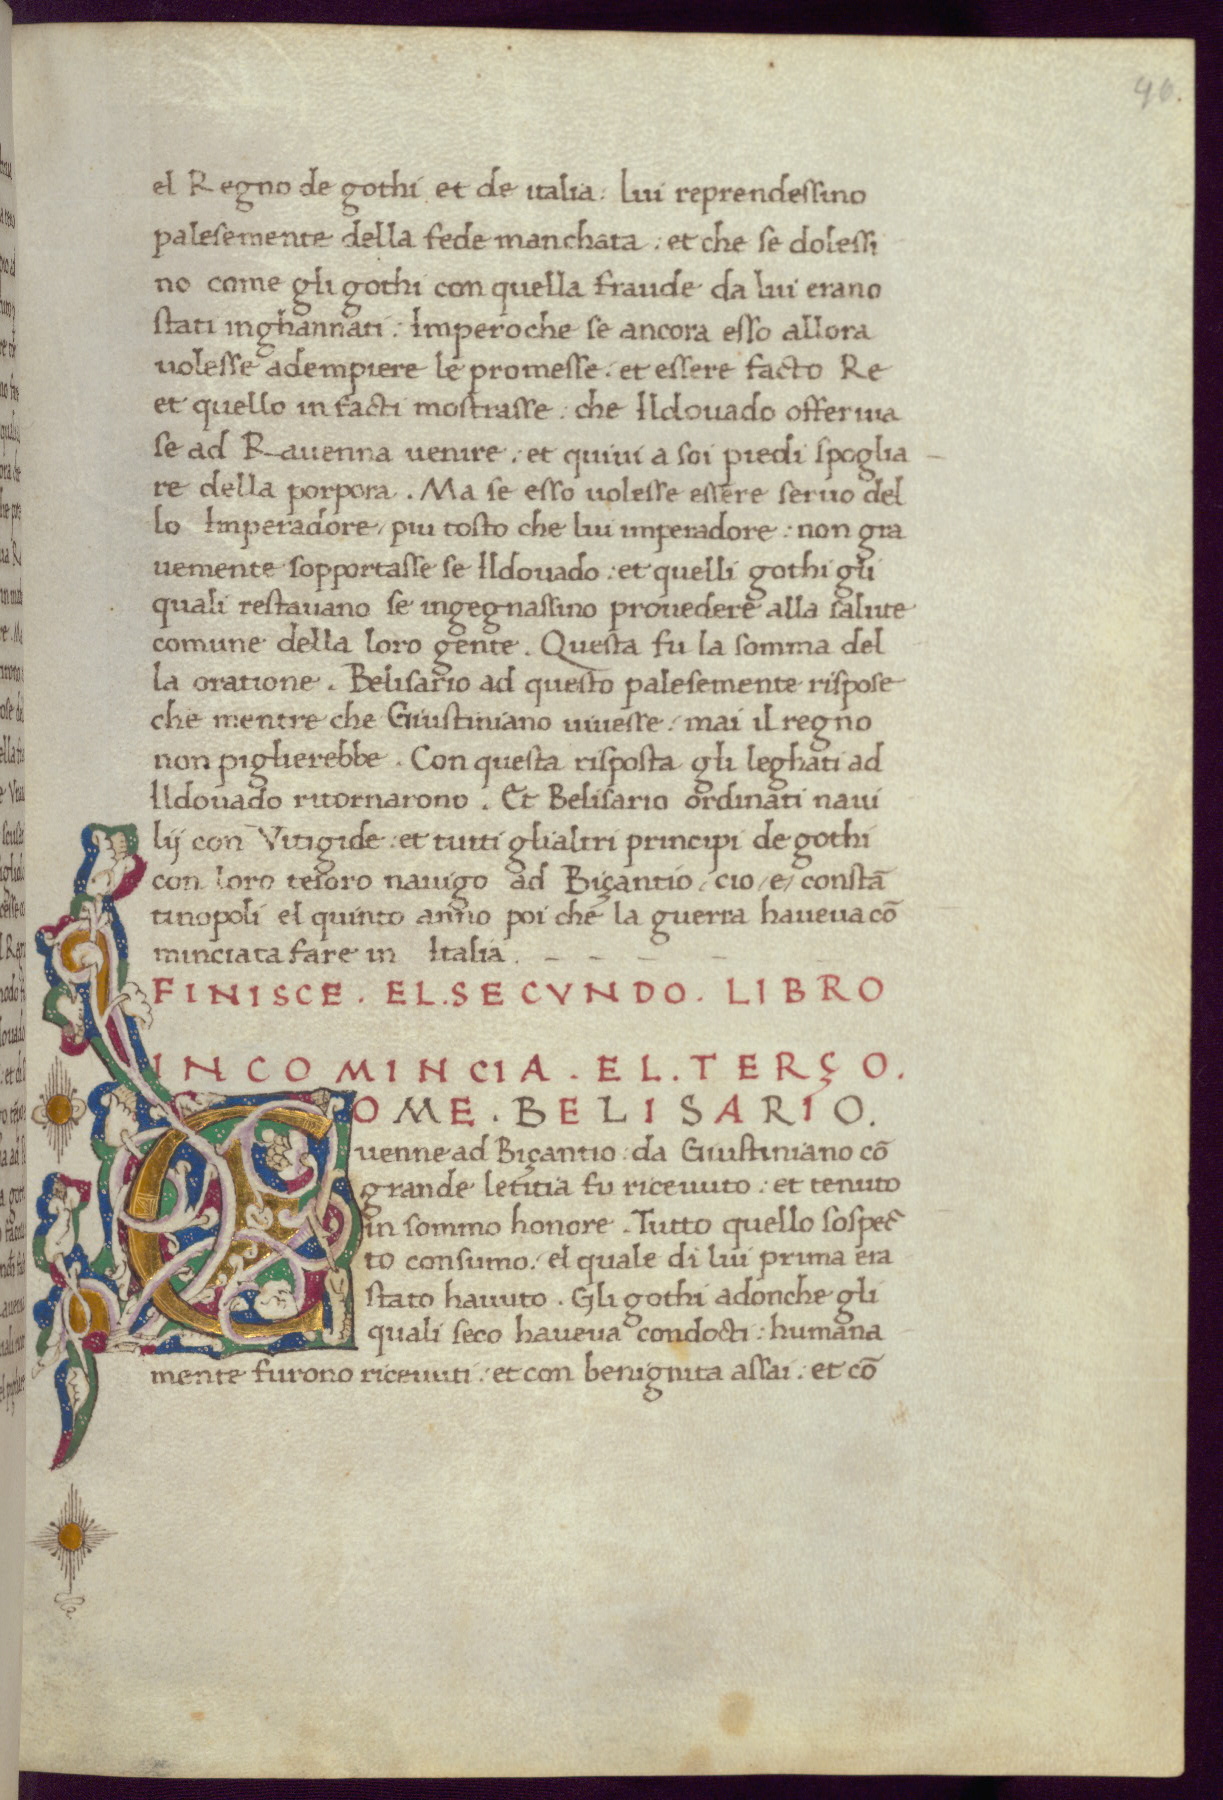 96.
el Regno de gothi et de italia: lui reprendessino
palesemente della fede manchata: et che se dolessi
no come gli gothi con quella fraude da lui erano
stati inghannati: Imperoche se ancora esso allora
volesse adempiere le promesse: et essere facto Re
et quello in facti mostrasse: che Ildovado offeriua
se ad Rauenna uenire: et quiui a soi piedi spoglia
re della porpora. Ma se esso uolesse essere seruo del
lo Imperadore, piu tosto che lui imperadore: non gra
uemente sopportasse se Ildouado: et quelli gothi gli
quali restauano se ingegnassino prouedere alla salute
comune della loro gente. Questa fu la somma del
la oratione. Belisario ad questo palesemente rispose
che mentre che Giustiniano uiuesse: mai il regno
non piglierebbe. Con questa risposta gli leghati ad
Ildouado ritornarono. Et Belisario ordinati naui
lij con Vitigide: et tutti glialtri principi de gothi
con loro tesoro nauigo ad Biçantio, cio, e, constā
tinopoli el quinto anno poi che la guerra haueua cō
minciata fare in Italia.
FINISCE. EL. SECVNDO. LIBRO
INCOMINCIA. EL. TERÇO.
COME. BELISARIO.
uenne ad Biçantio: da Giustiniano cō
grande letitia fu riceuuto: et tenuto
in sommo honore. Tutto quello sospec
to consumo: el quale di lui prima era
stato hauuto. Gli gothi adonche gli
quali seco haueua condocti: humana
mente furono riceuuti: et con benignita assai: et cō